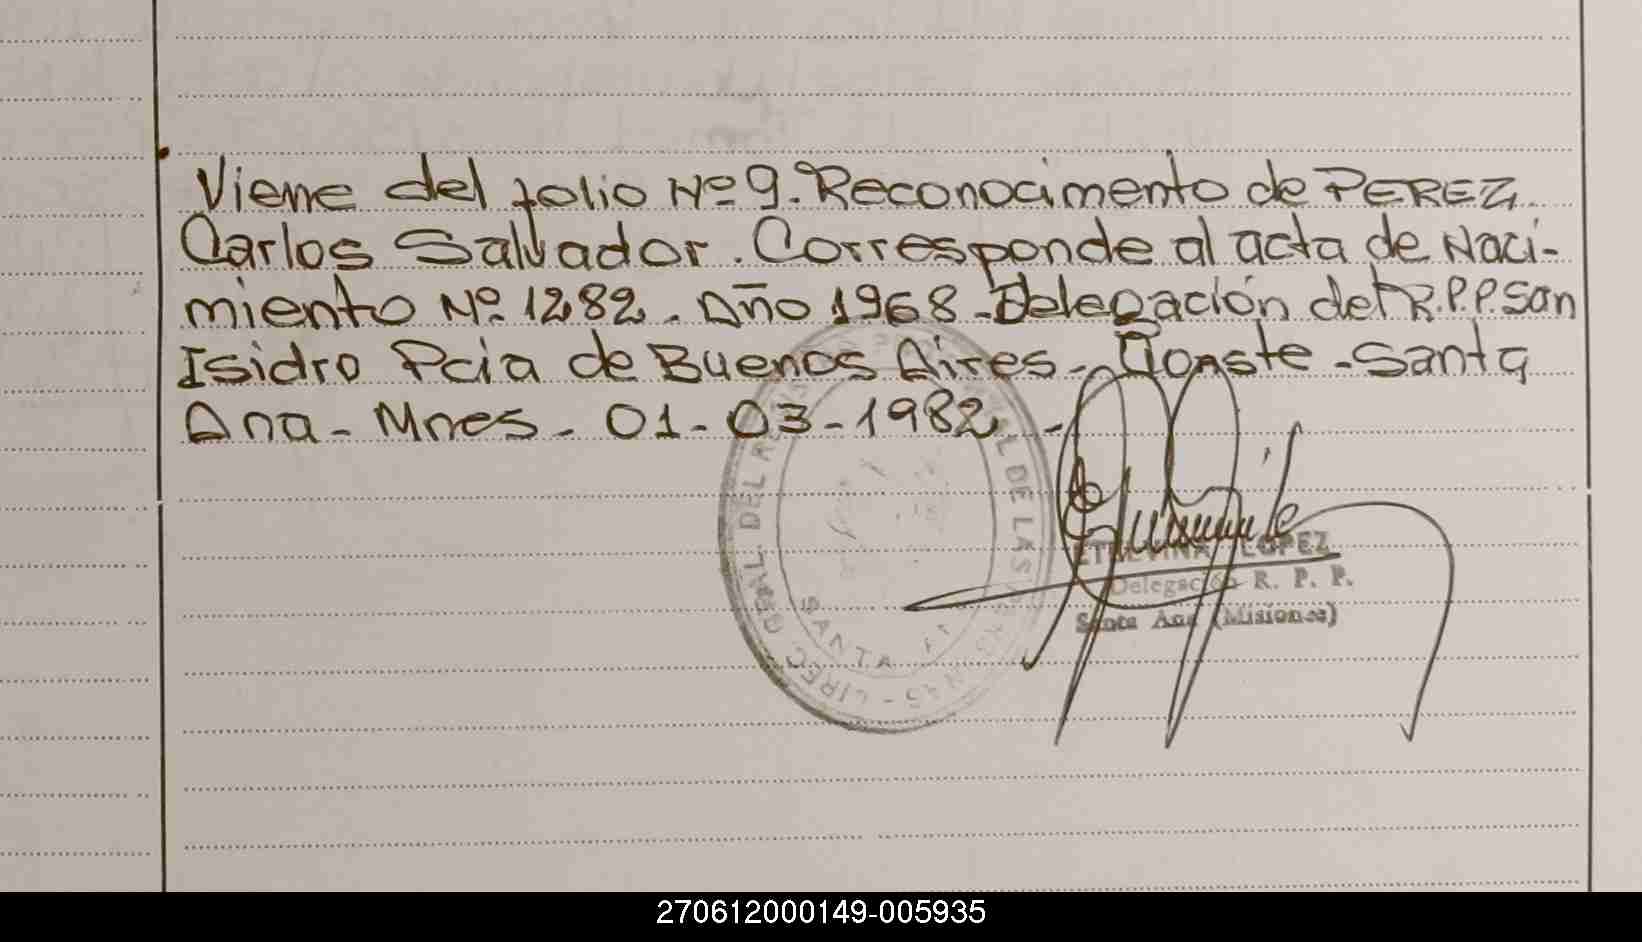 Viene del folio Nº 9. Reconocimento de PEREZ
Carlos Salvador. Corresponde al acta de Naci-
miento Nº 1282. Año 1968. Delegación del R.P.P. San
Isidro Pcia de Buenos Aires. Conste - Santa
Ana - Mnes. 01-03-1982.-
LOPEZ
Delegación R. P. P.
Santa Ana (Misiones)
SANTA
270612000149-005935